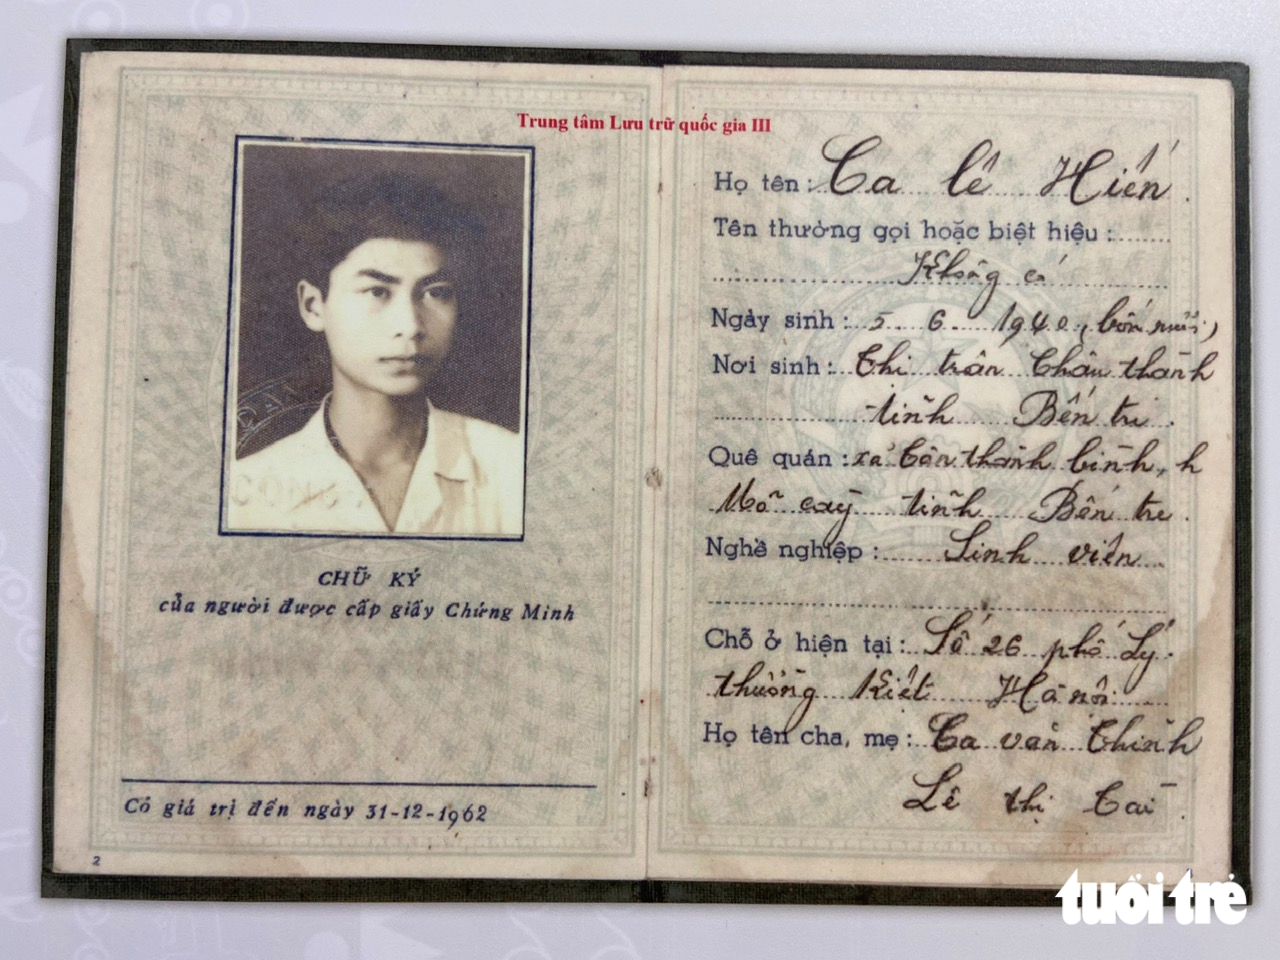 Trung tâm Lưu trữ quốc gia III
CHỮ KÝ
của người được cấp giấy Chứng Minh
Có giá trị đến ngày 31-12-1962
2
Họ tên: Ca Lê Hiến
Tên thường gọi hoặc biệt hiệu:
Không có
Ngày sinh: 5. 6. 1940 (bốn mươi)
Nơi sinh: Thị trấn Châu thành
tỉnh Bến tre.
Quê quán: xã Tân thành bình, h
Mỏ cày tỉnh Bến tre.
Nghề nghiệp: Sinh viên
Chỗ ở hiện tại: Số 26 phố Lý
thường Kiệt Hà nội
Họ tên cha, mẹ: Ca văn Thỉnh
Lê thị
tuổi trẻ